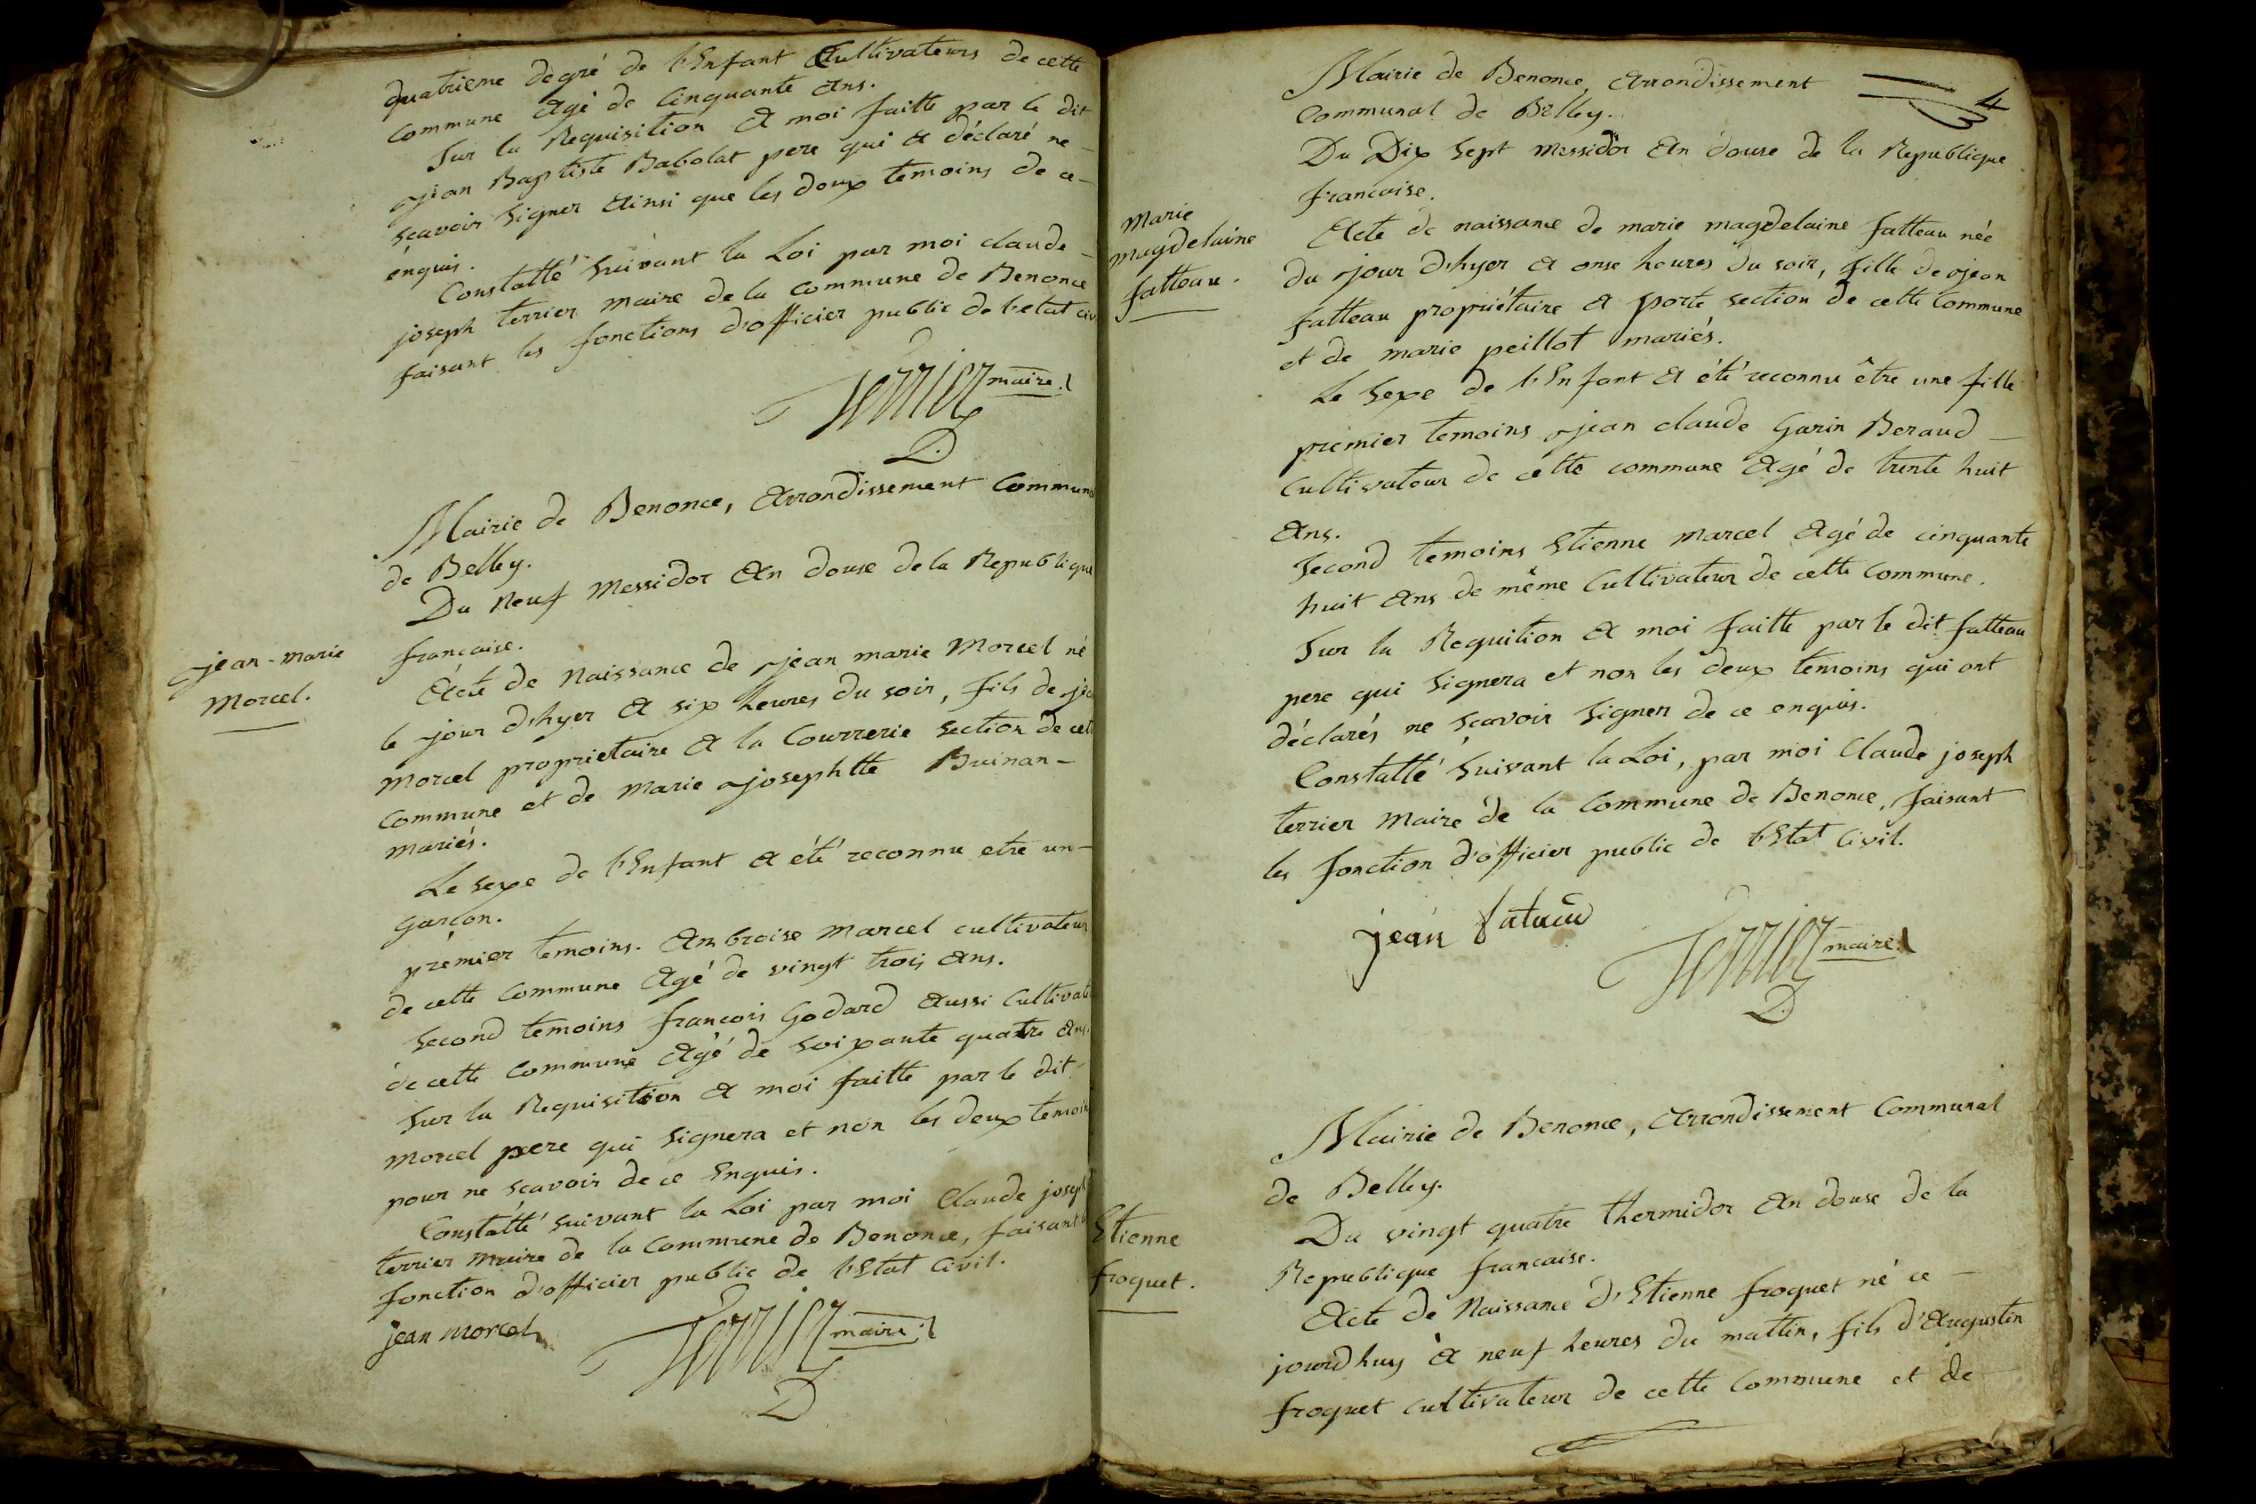 quatrieme degré de l'Enfant Cultivateurs de cette
commune agé de Cinquante ans.
Sur la Requisition a moi faitte par le dit
jean Baptiste Babolat pere qui a déclaré ne -
sçavoir signer ainsi que les deux temoins de ce -
enquis.
Constatté suivant la Loi par moi claude -
joseph terrier maire de la commune de Benonce
faisant les fonctions d'officier public de l'etat civ
Terrier maire
Mairie de Benonce, arrondissement Communal
de Belley.
Du Neuf Messidor an douse de la Republique
francaise.
jean-marie
Morcel.
Acte de Naissance de jean marie Morcel né
le jour d'hyer a six heures du soir, fils de jean
Morcel proprietaire a la Courrerie section de cette
Commune et de Marie josephtte Buinan -
mariés.
Le sexe de l'Enfant a été reconnu etre un -
garcon.
prémier temoins. ambroise marcel cultivateur
de cette Commune agé de vingt trois ans.
Second temoins francois Godard aussi Cultivate
de cette Commune agé de soixante quatre ans.
Sur la Requisition a moi faitte par le dit
Morcel pere qui signera et non les deux temoins
pour ne sçavoir de ce Enquis.
Constatté suivant la Loi par moi Claude joseph
terrier maire de la Commune de Benonce, faisant
fonction d'officier public de l'Etat Civil.
jean morcel
Terrier maire
4
Mairie de Benonce, arrondissement
Communal de Belley.
Du Dix sept Messidor an douse de la Republique
francaise.
Marie
magdelaine
fatteau.
Acte de naissance de marie magdelaine fatteau née
du jour d'hyer a onse heures du soir, fille de jean
fatteau propriétaire a porte section de cette Commune
et de marie peillot mariés.
Le sexe de l'Enfant a été reconnu être une fille
premier temoins jean claude Garin Beraud -
Cultivateur de cette commune agé de trente huit
ans.
Second temoins Etienne Marcel agé de cinquante
huit ans de même Cultivateur de cette Commune.
Sur la Requition a moi faitte par le dit fatteau
pere qui signera et non les deux temoins qui ont
déclarés ne sçavoir signer de ce enquis.
Constatté suivant la Loi, par moi Claude joseph
terrier Maire de la Commune de Benonce, faisant
les fonction d'officier public de l'Etat Civil.
jean
Terrier maire
Mairie de Benonce, arrondissement Communal
de Belley.
Du vingt quatre thermidor an douse de la
Republique francaise.
Etienne
froquet.
Acte de Naissance d'Etienne froquet né ce -
jourdhuy à neuf heures du mattin, fils d'augustin
froquet cultivateur de cette Commune et de